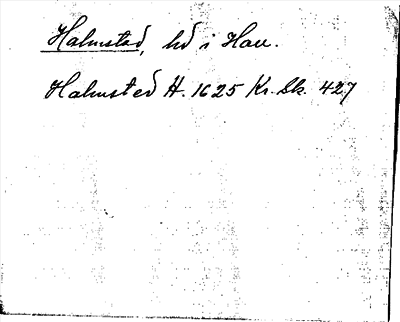 Halmstad, hd i Hall.
Halmsted H. 1625 Kr. Sk. 427